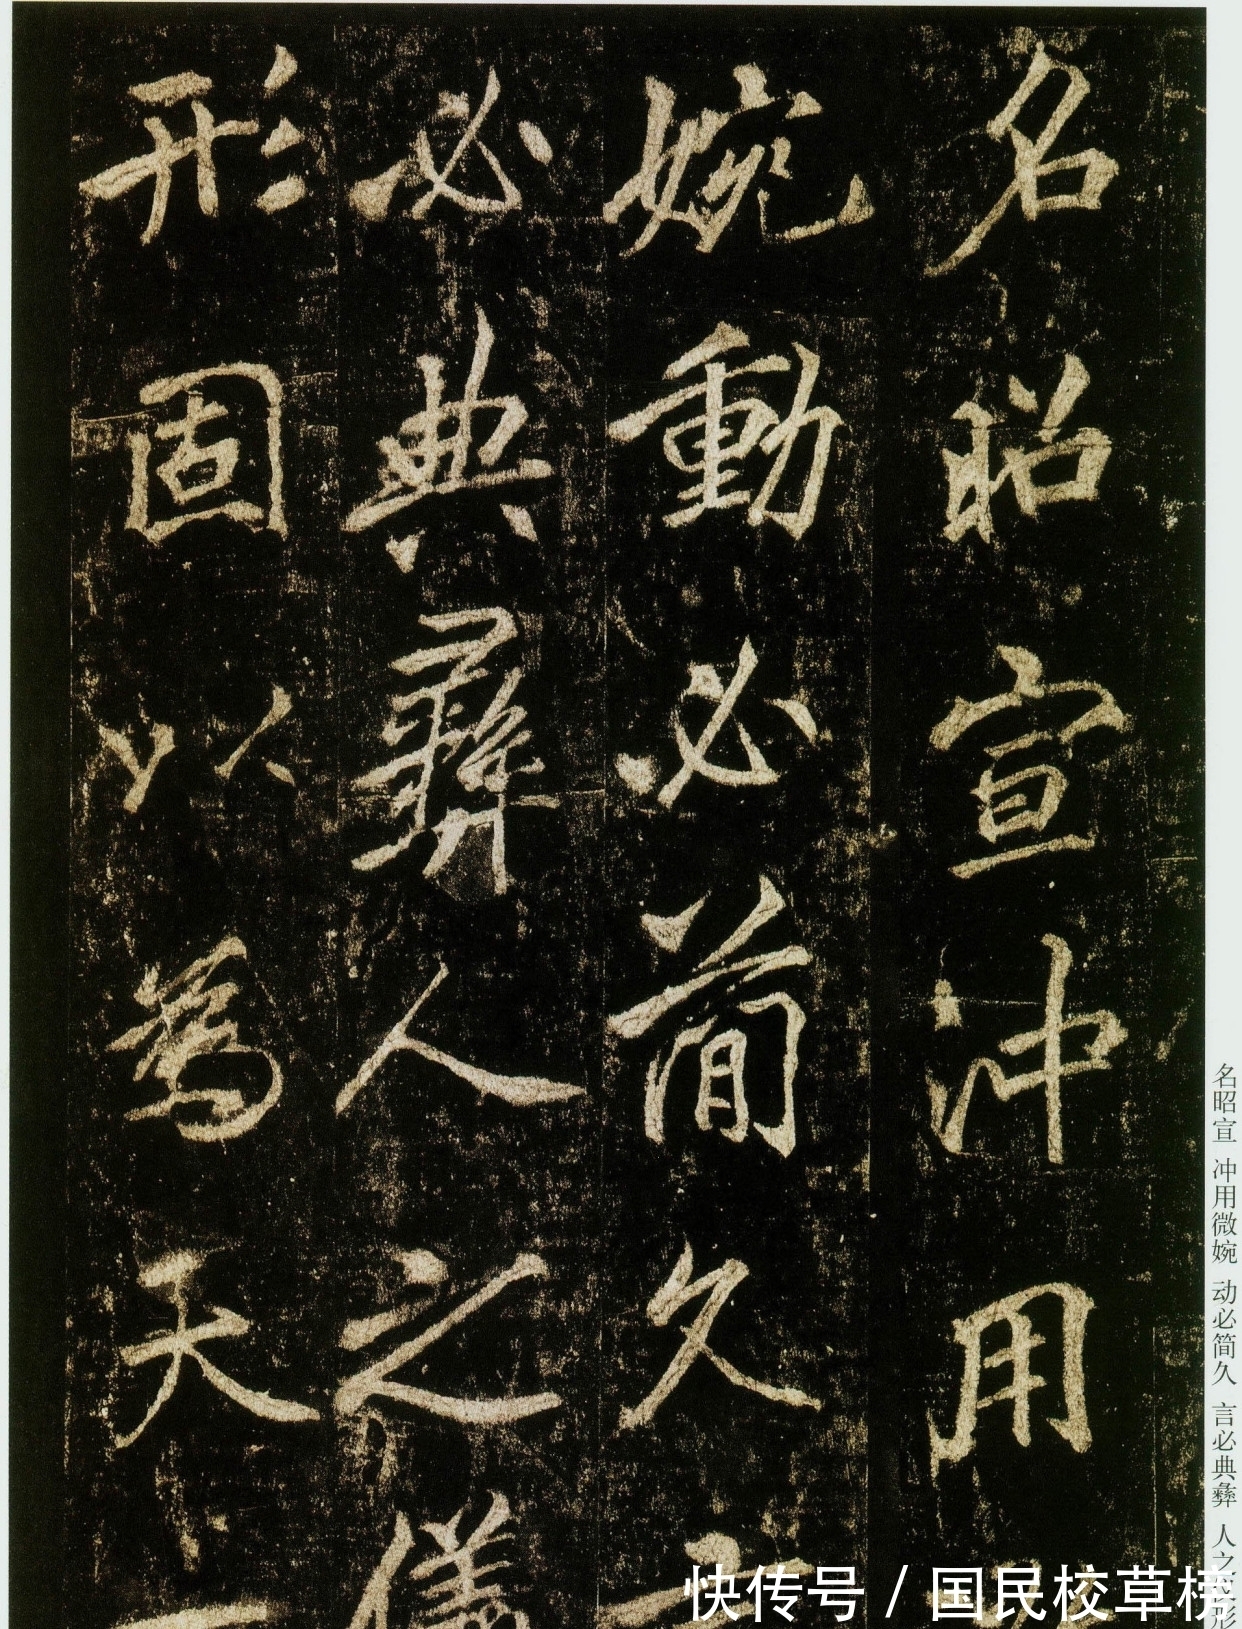 名昭宣冲用
婉動必簡久
必典彝人之儀
形固以為天
名昭宣 冲用微婉 动必简久 言必典彝 人之
形
快传号 / 国民校草榜